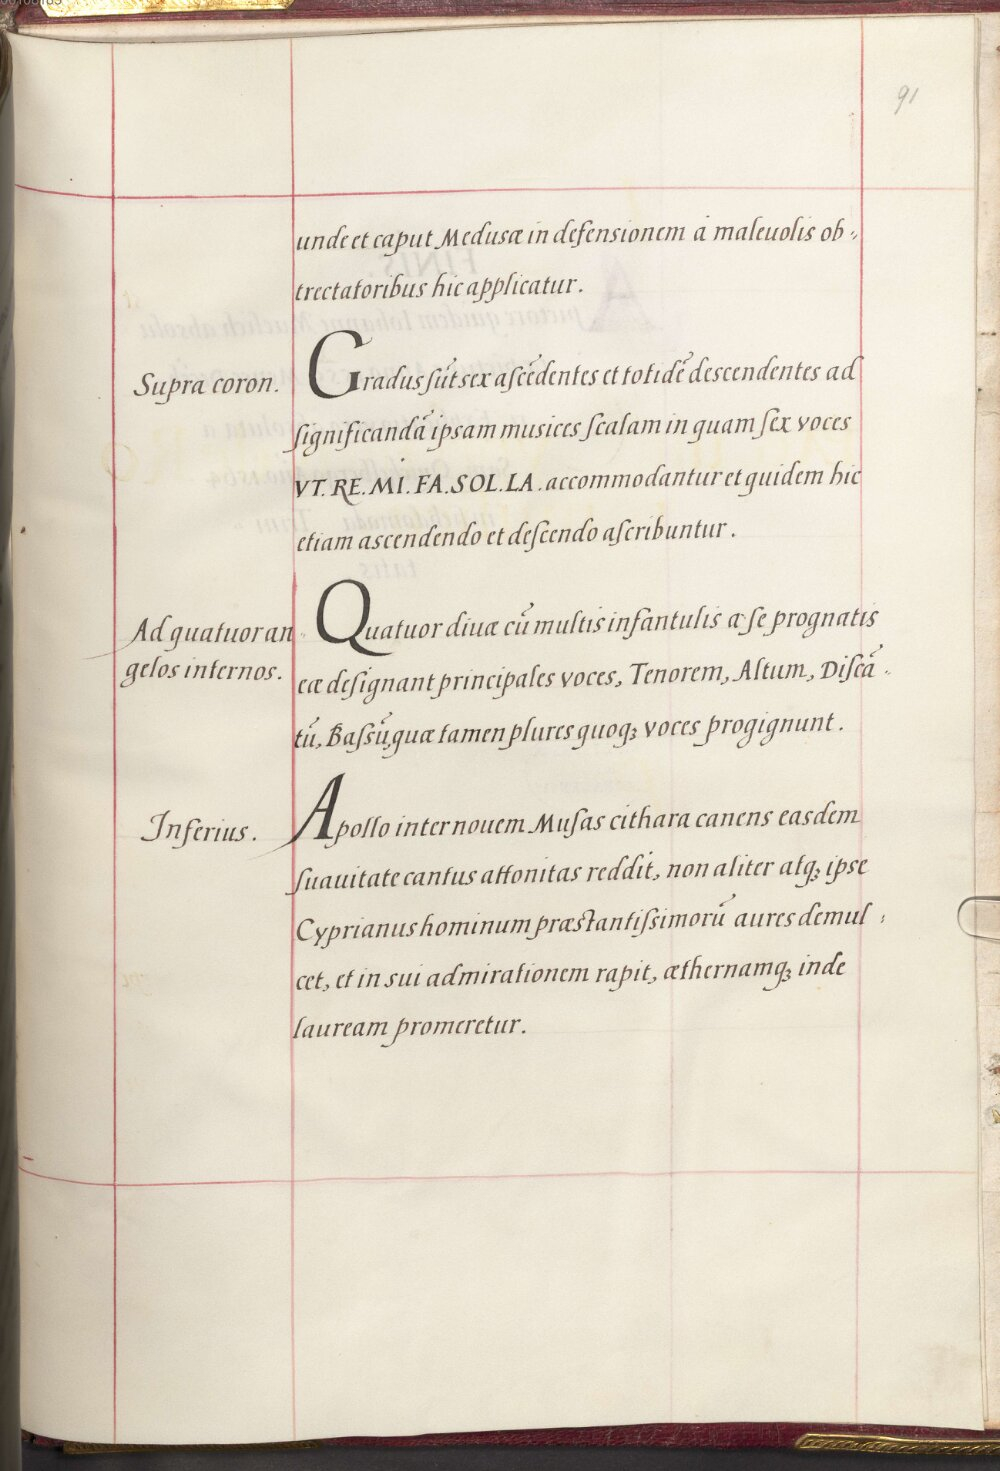 91
unde et caput Medusæ in defensionem à maleuolis ob-
trectatoribus hic applicatur.
Supra coron.
Gradus ſũt sex aſcẽdentes et totidẽ descendentes ad
ſignificandã ipsam musices ſcalam in quam ſex voces
VT. RE. MI. FA. SOL. LA. accommodantur et quidem hic
etiam ascendendo et deſcendo aſcribuntur.
Ad quatuor an
gelos internos.
Quatuor diuæ cũ multis infantulis a ſe prognatis
eæ deſignant principales voces, Tenorem, Altum, Diſcã-
tũ, Baſsũ, quæ tamen plures quoqȝ voces progignunt.
Inferius.
Apollo inter nouem Muſas cithara canens easdem
ſuauitate cantus attonitas reddit, non aliter atqȝ ipse
Cyprianus hominum præstantiſsimorũ aures demul-
cet, et in sui admirationem rapit, æthernamqȝ inde
lauream promeretur.